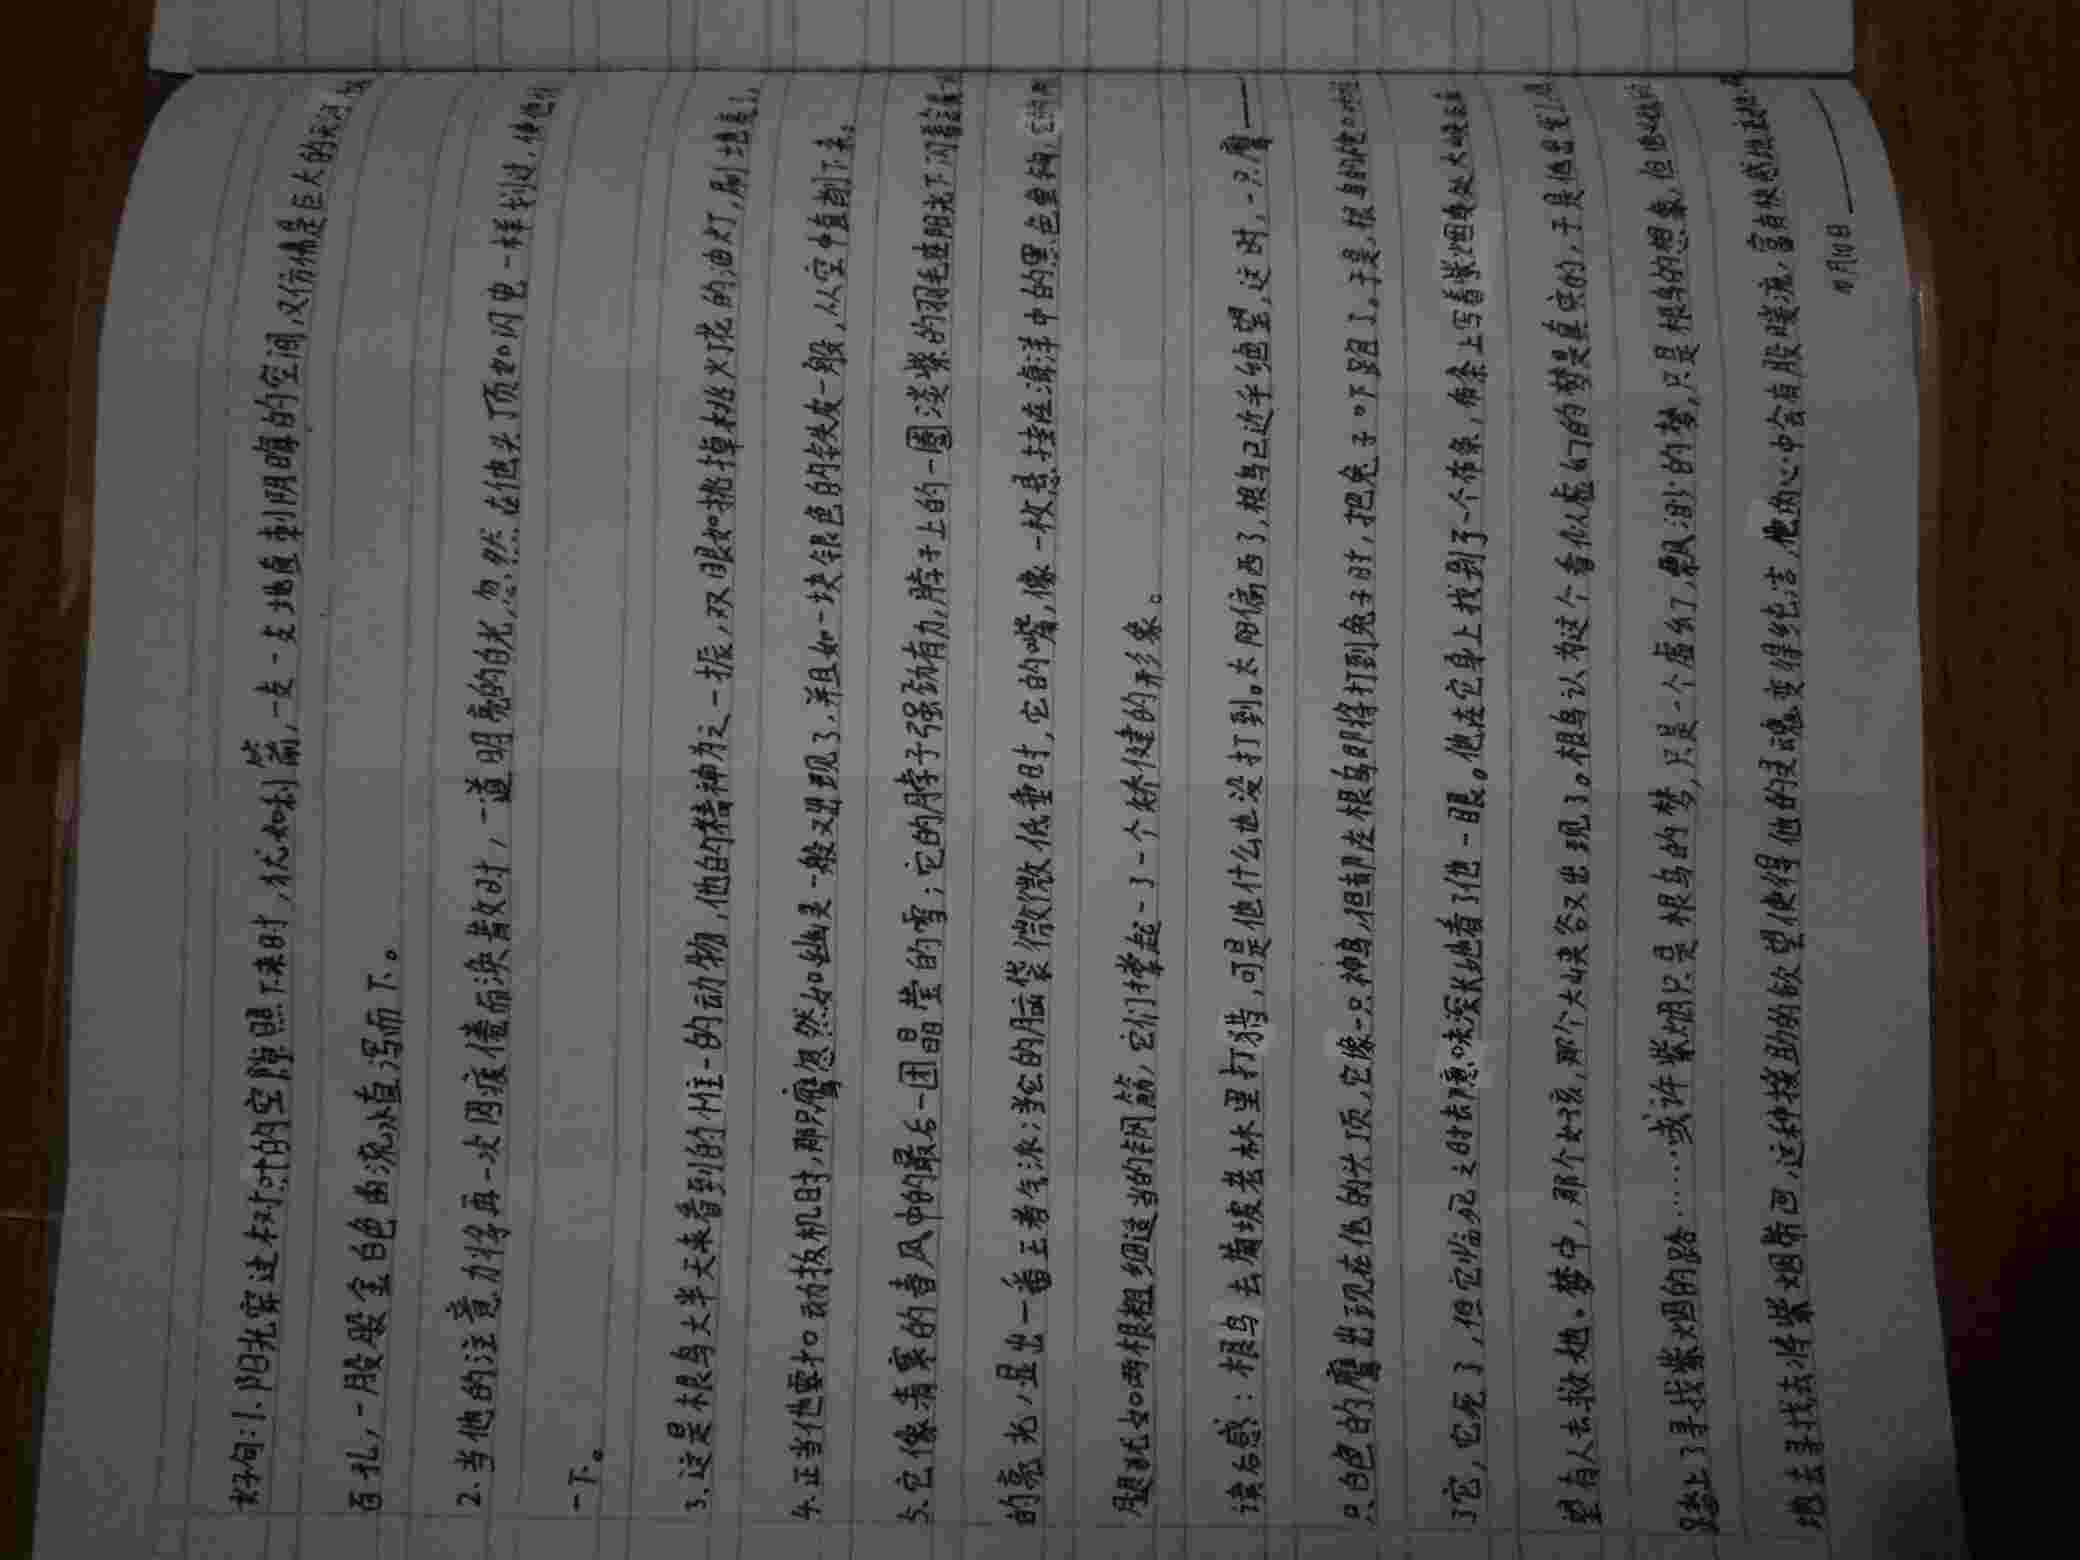 好句:1.阳光穿过树叶的空隙照下来时,犹如利箭,一支一支地直刺阴晦的空间,又仿佛是巨大的天河,
百孔,一股股金白色的流水直泻而下。
2.当他的注意力将再一次因疲倦而涣散时,一道明亮的白光,忽然在他头顶如闪电一样划过,使他
一下。
3.这是根鸟大半天来看到的唯一的动物,他的精神为之一振,双眼如挑掉灯花的油灯,刷地亮了。
4.正当他要扣动扳机时,那只鹰忽然如幽灵一般又出现了,并且如一块银色的铁皮一般,从空中直削下来。
5.它像清寒的春风中的最后一团晶莹的雪;它的脖子强劲有力,脖子上的一圈淡紫的羽毛在阳光下闪着
的亮光,显出一番王者气派;当它的脑袋微微低垂时,它的嘴,像一枚悬挂在海洋中的黑色鱼钩,它的两
腿犹如两根粗细适当的钢筋,它们撑起了一个矫健的形象。
读后感:根鸟去莆坡老林里打猎,可是他什么也没打到。太阳偏西了,根鸟已近乎绝望,这时,一只鹰——
只白色的鹰出现在他的头顶,它像一只神鸟,但却在根鸟即将打到兔子时,把兔子吓跑了。于是,根鸟
了它,它死了,但它临死之时去意味深长地看了他一眼。他在它身上找到了一个布条,布条上写着紫烟身处大峡谷
望有人去救她。梦中,那个女孩,那个大峡谷又出现了。根鸟认为这个看似虚幻的梦是真实的,于是他
踏上了寻找紫烟的路……或许紫烟只是根鸟的梦,只是一个虚幻,飘渺的梦,只是根鸟的想象,但他
地去寻找去将紫烟带回,这种援助的欲望使得他的灵魂变得纯洁,他的心中会有股暖流,
月10日